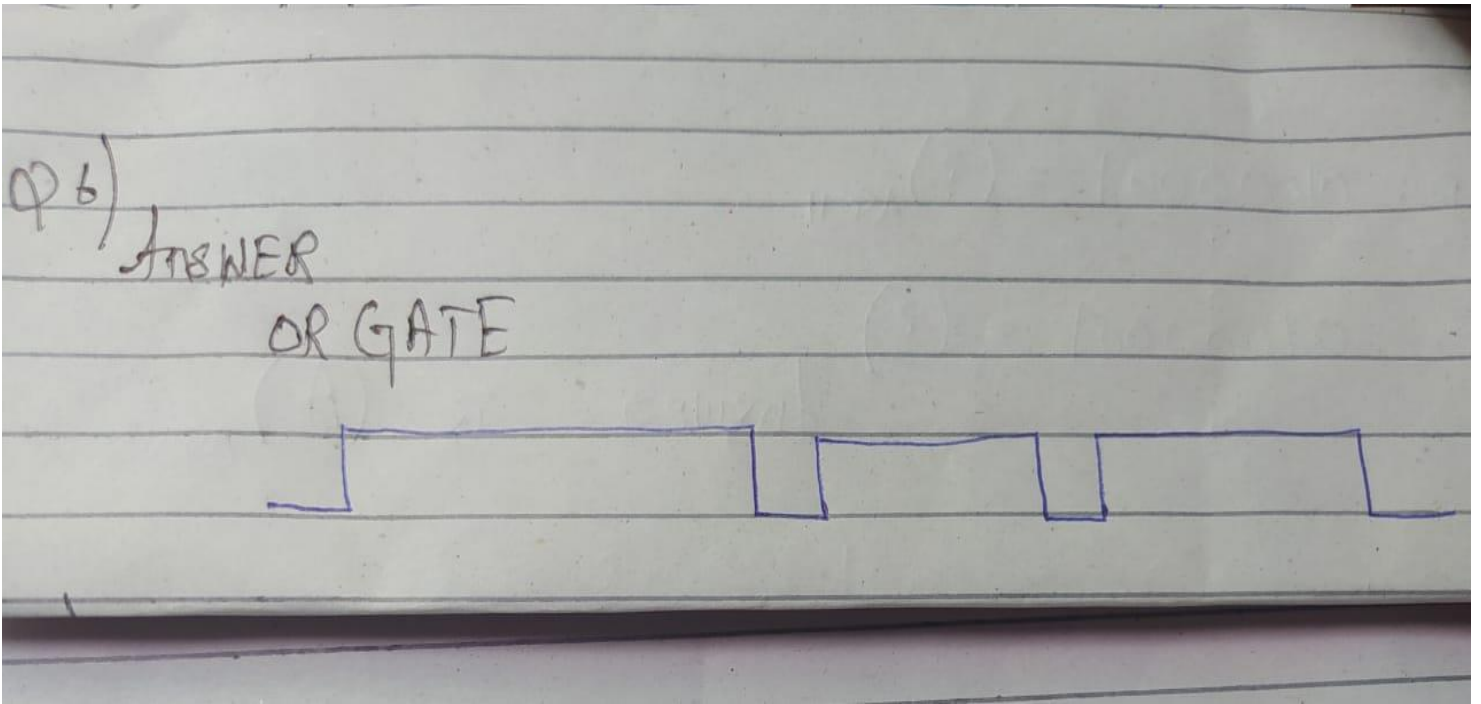 Q6)
ANSWER
OR GATE